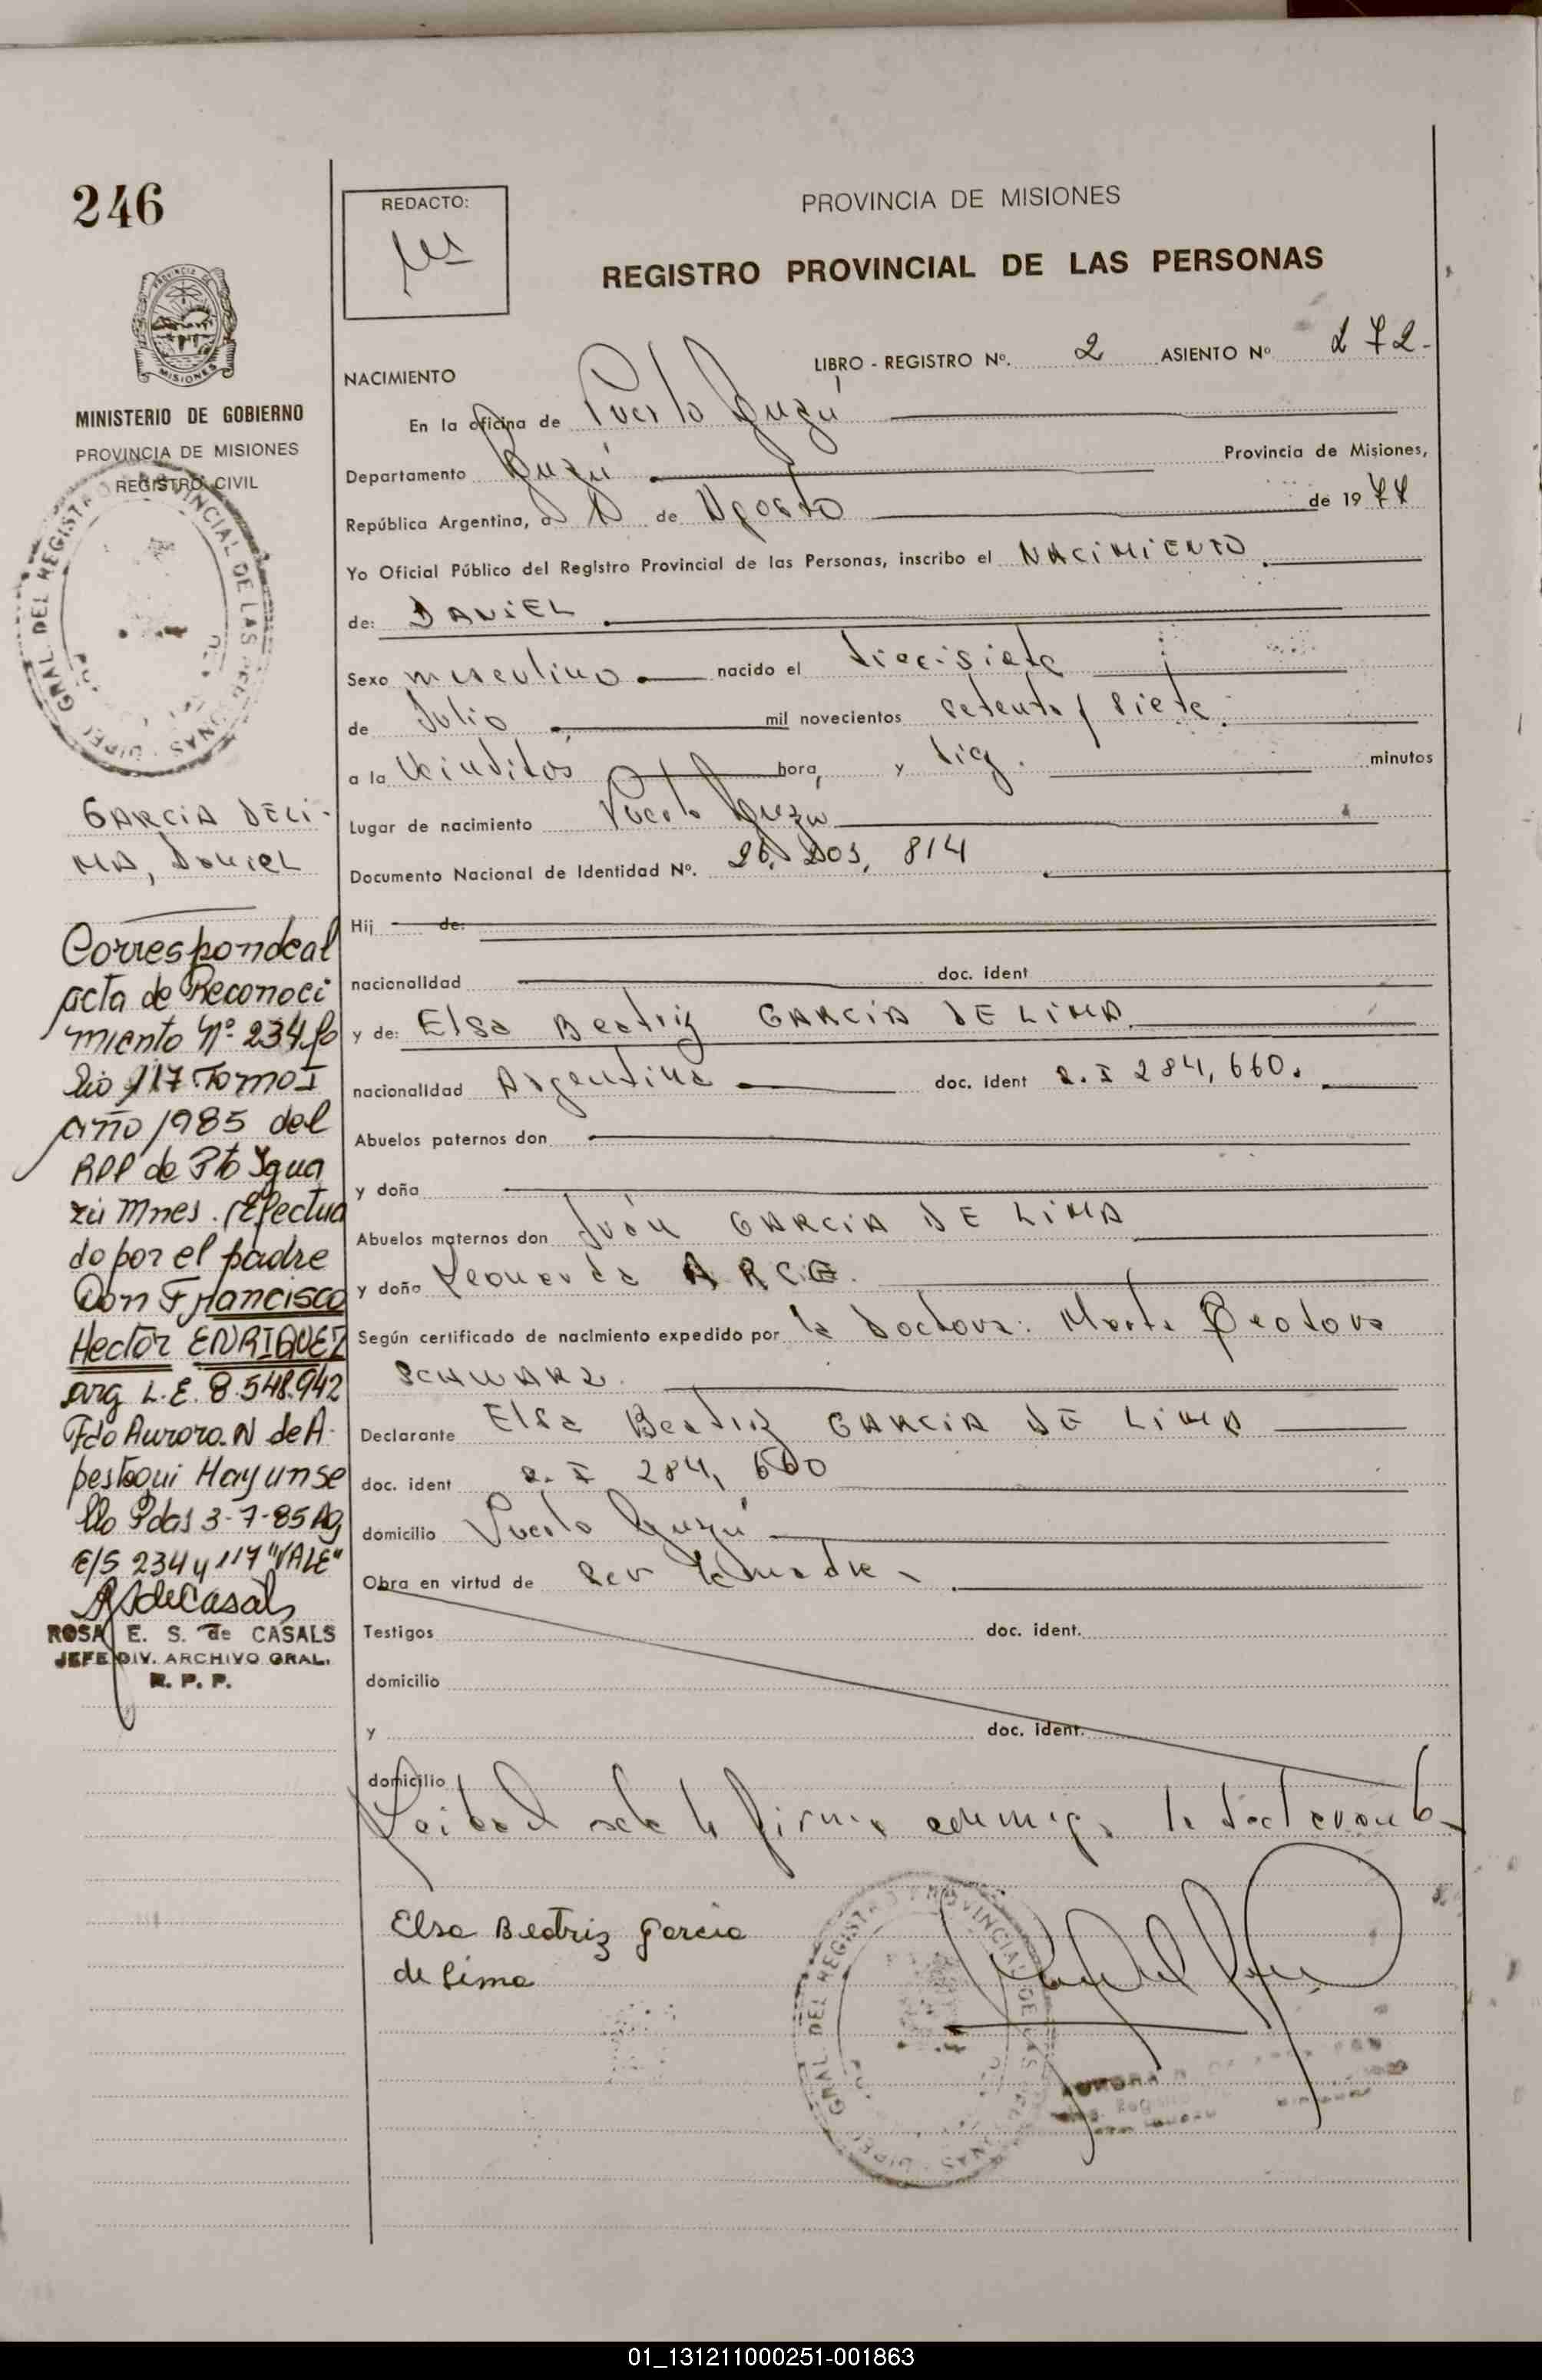 246
REDACTO:
PROVINCIA DE MISIONES
REGISTRO PROVINCIAL DE LAS PERSONAS
MISIONES
MINISTERIO DE GOBIERNO
PROVINCIA DE MISIONES
REGISTRO CIVIL
GARCIA DE LI-
MA, Daniel
Correspondeal
acta de Reconoci
miento Nº 234 fo
lio 117 Tomo I
año 1985 del
RPP de Pto Igua
zú Mnes. Efectua
do por el padre
Don Francisco
Hector ENRIQUEZ
arg L.E. 8.548.942
Fdo Aurora N de A-
pestegui Hay un se
llo Pdas 3-7-85 Ag
E/S 234 y 117 "VALE"
ROSA E. S. de CASALS
JEFE DIV. ARCHIVO GRAL.
R. P. P.
LIBRO - REGISTRO Nº. 2 ASIENTO Nº 272-
NACIMIENTO
En la oficina de Puerto Iguazú
Departamento Iguazú Provincia de Misiones,
República Argentina, a de Agosto de 1977
Yo Oficial Público del Registro Provincial de las Personas, inscribo el NACIMIENTO
de: DANIEL
Sexo masculino nacido el diecisiete
de Julio mil novecientos setenta y siete
a la veintidós hora, y diez minutos
Lugar de nacimiento Puerto Iguazú
Documento Nacional de Identidad Nº. 26, 814
Hij de:
nacionalidad doc. ident
y de: Elsa Beatriz GARCIA DE LIMA
nacionalidad Argentina doc. ident 284,660.
Abuelos paternos don
y doña
Abuelos maternos don Juán GARCIA DE LIMA
y doña Leonarda ARCE.
Según certificado de nacimiento expedido por la Doctora: Marta Teodora
SCHWARZ.
Declarante Elsa Beatriz GARCIA DE LIMA
doc. ident 284, 660
domicilio Puerto Iguazú
Obra en virtud de ser la madre
Testigos doc. ident.
domicilio
y doc. ident.
domicilio
Leida el acta la firma conmigo la declarante
Elsa Beatriz Garcia
de Lima
DIREC. GRAL. DEL REGISTRO PROVINCIAL DE LAS PERSONAS
01_131211000251-001863